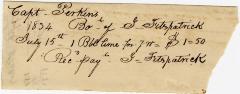 Capt Perkins
1834 Bot of J Fitzpatrick
July 15th 1 Bbl lime for 7 w $1=50
Rec pay J= Fitzpatrick